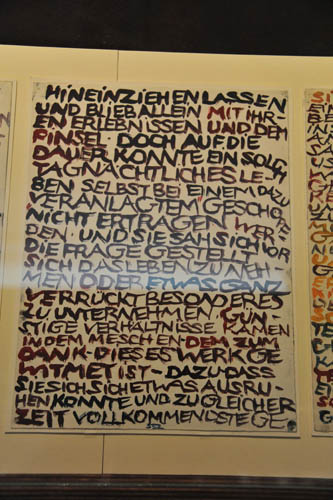 HINEINZIEHEN LASSEN
UND BLIEB ALLEIN MIT IHR-
EN ERLEBNISSEN UND DEM
PINSEL. DOCH AUF DIE
DAUER KONNTE EIN SOLCH
TAGNÄCHTLICHES LE-
BEN SELBST BEI EINEM DAZU
"VERANLAGTEM" GESCHÖPF
NICHT ERTRAGEN WER-
DEN. UND SIE SAH SICH VOR
DIE FRAGE GESTELLT
SICH DAS LEBEN ZU NEH-
MEN ODER ETWAS GANZ
VERRÜCKT BESONDERES
ZU UNTERNEHMEN. GÜN-
STIGE VERHÄLTNISSE KAMEN
IN DEM MESCHEN-DEM ZUM
DANK-DIESES WERK GE
WITMET IST- DAZU-DASS
SIE SICH SICH ETWAS AUSRU-
HEN KONNTE UND ZU GLEICHER
ZEIT VOLLKOMMENDSTE GE